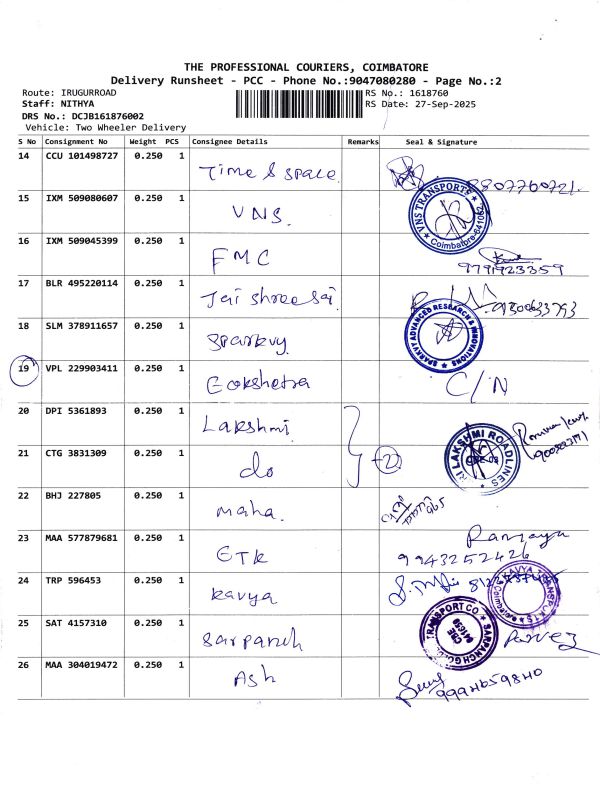 THE PROFESSIONAL COURIERS, COIMBATORE
Delivery Runsheet - PCC - Phone No.:9047080280 - Page No.:2
Route: IRUGURROAD
RS No.: 1618760
Staff: NITHYA
RS Date: 27-Sep-2025
DRS No.: DCJB161876002
Vehicle: Two Wheeler Delivery
S No Consignment No Weight PCS Consignee Details Remarks Seal & Signature
14 CCU 101498727 0.250 1 Time & space 8807760721
15 IXM 509080607 0.250 1 VNS. VNS TRANSPORTS Coimbatore-641062
16 IXM 509045399 0.250 1 FMC 9791923359
17 BLR 495220114 0.250 1 Jai shree sai
18 SLM 378911657 0.250 1 sparkvy SPARKVY ADVANCED RESEARCH & INNOVATIONS
19 VPL 229903411 0.250 1 Gokshetra C/N
20 DPI 5361893 0.250 1 Lakshmi
21 CTG 3831309 0.250 1 do 2 RI LAKSHMI ROADLINES
22 BHJ 227805 0.250 1 maha.
23 MAA 577879681 0.250 1 ETK Ranjaya 9943252426
24 TRP 596453 0.250 1 kavya KAVYA TRANSPORTS
25 SAT 4157310 0.250 1 Sarpanch SARPANCH TRANSPORT CO CBE Parvez
26 MAA 304019472 0.250 1 Ash 9994659840